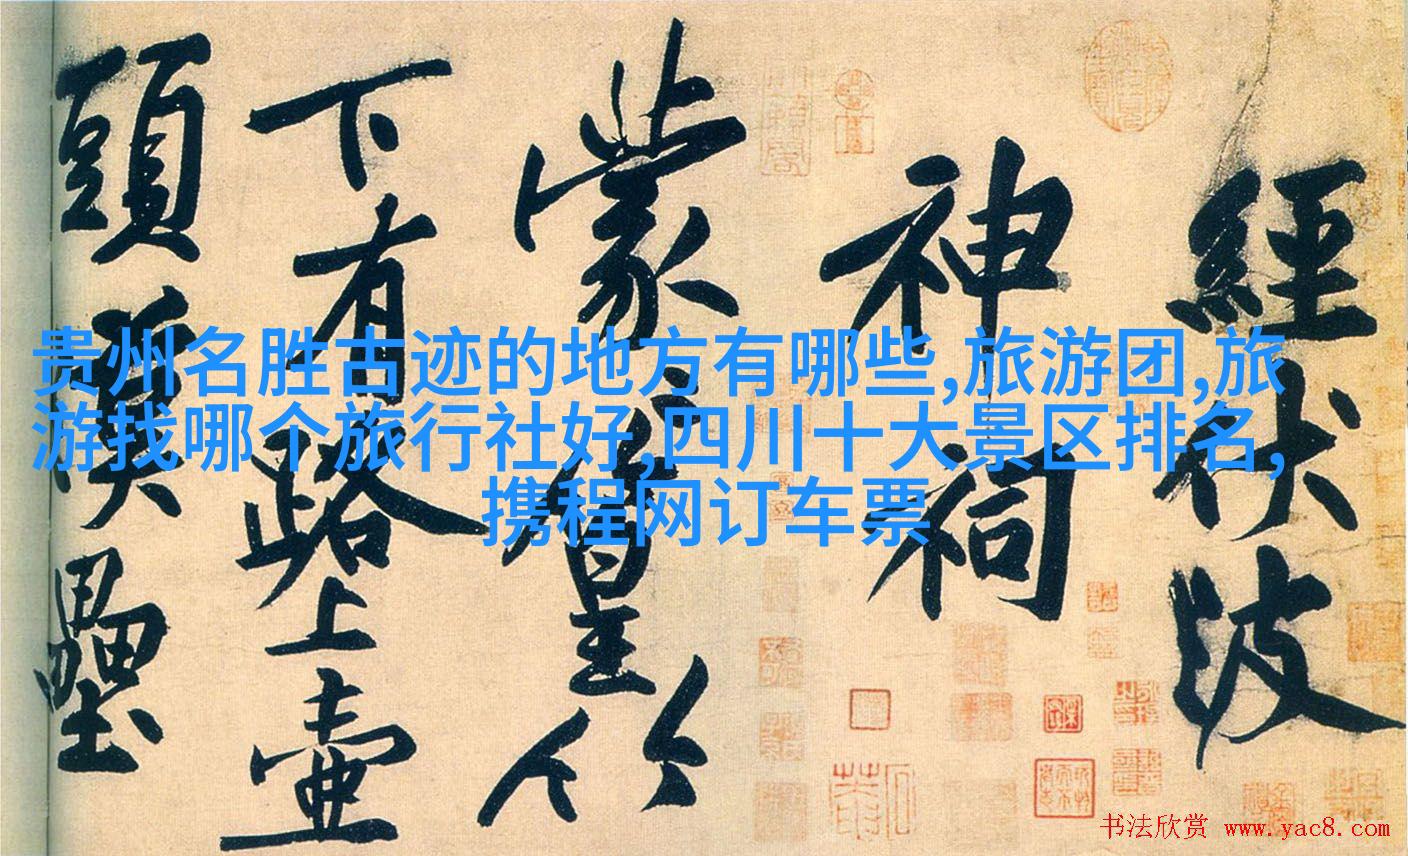 經伏波
神祠
蒙〻篁竹
下有路上壺
頭漢壘
贵州名胜古迹的地方有哪些,旅游团,旅
游找哪个旅行社好,四川十大景区排名,
携程网订车票
书法欣赏 www.yac8.com